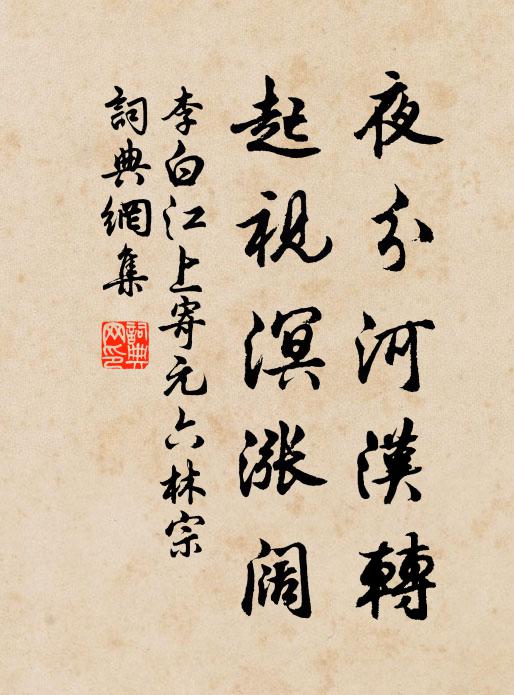 夜分河漢轉
起視溟漲闊
李白江上寄元六林宗
詞典網集
詞典網印